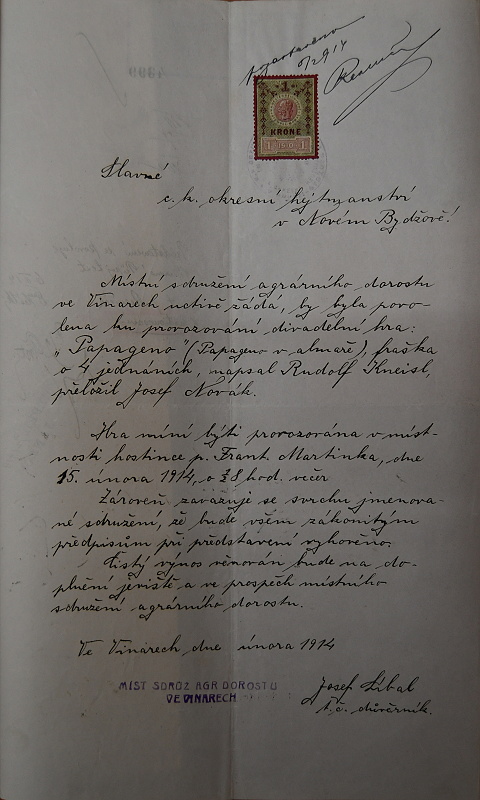 6/2 914
1
KRONE
1 1
Slavné
c. k. okresní hejtmanství
v Novém Bydžově!
Místní sdružení agrárního dorostu
ve Vinarech uctivě žádá, by byla povo-
lena ku provozování divadelní hra:
„Papageno" (Papageno v almaře), fraška
o 4 jednáních, napsal Rudolf Kneisl,
přeložil Josef Novák.
Hra míní býti provozována v míst-
nosti hostince p. Frant. Martinka, dne
15. února 1914, o ½8 hod. večer
Zároveň zavazuje se svrchu jmenova-
né sdružení, že bude všem zákonitým
předpisům při představení vyhověno.
Čistý výnos věnován bude na do-
plnění jeviště a ve prospěch místního
sdružení agrárního dorostu.
Ve Vinarech dne února 1914
MÍST SDRUŽ AGR DOROSTU
VE VINARECH
Josef Líbal
t. č. důvěrník.